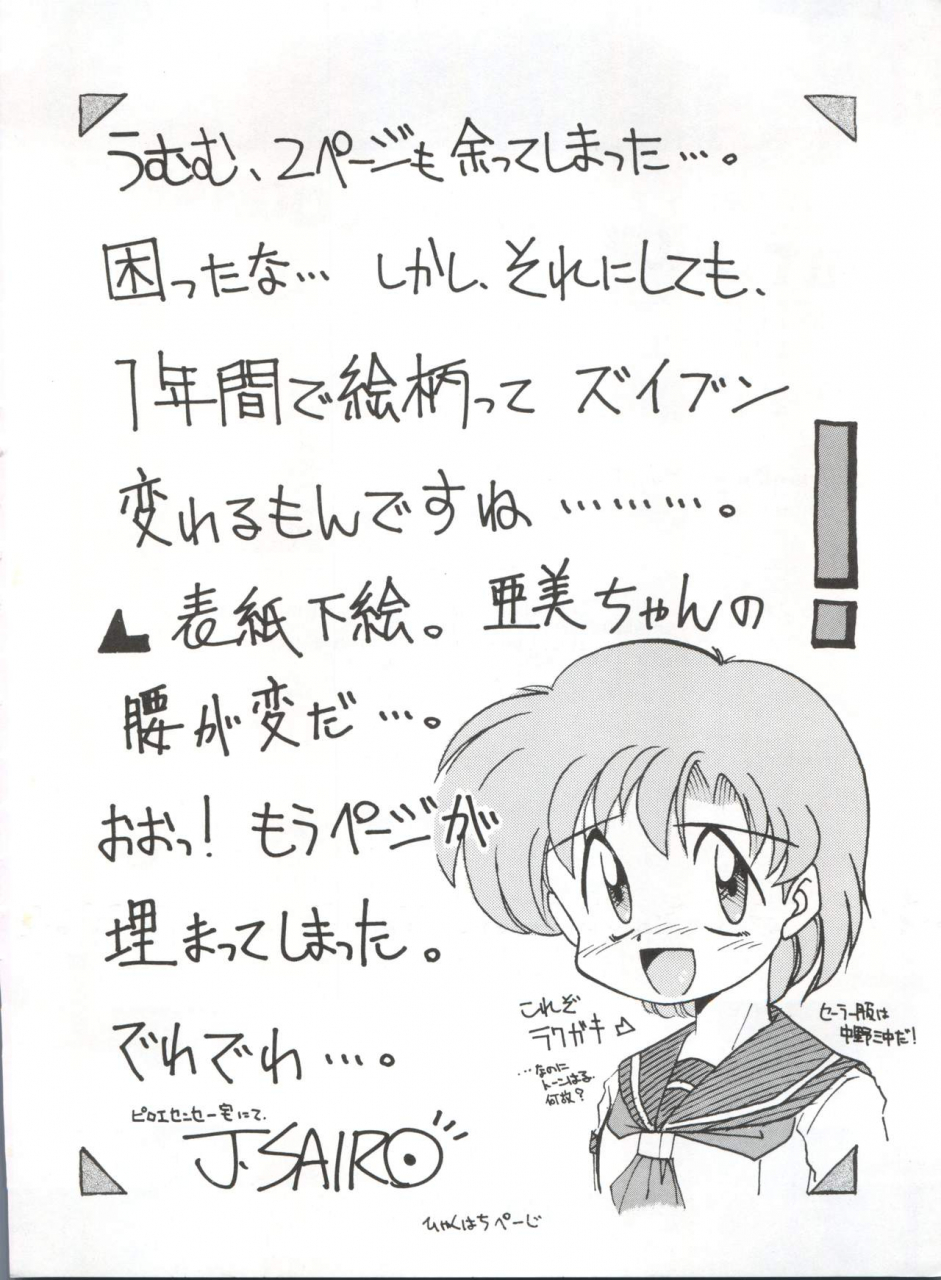 うむむ、2ページも余ってしまった…。
困ったな… しかし、それにしても、
1年間で絵柄って ズイブン
変わるもんですね………。
▲表紙下絵。亜美ちゃんの
腰が変だ…。
おおっ! もうページが
埋まってしまった。
でわでわ…。
ピロエセンセー宅にて。
J.SAIRO
これぞ
ラクガキ
…なのに
トーンはる。
何故?
セーラー服は
中野三中だ!
ひゃくはちぺーじ